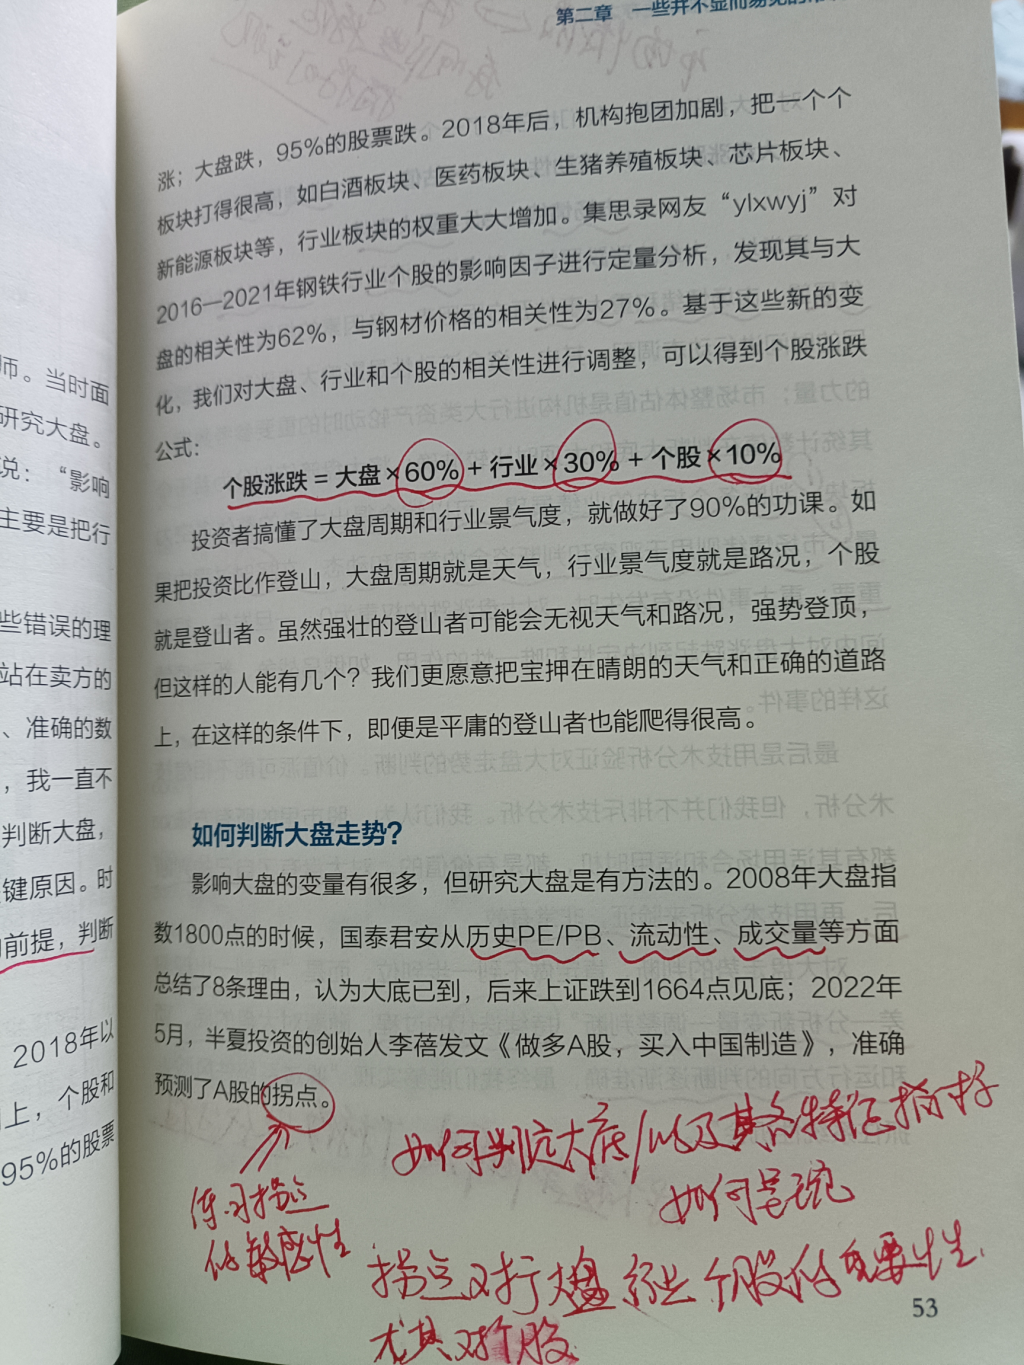 师。当时面
研究大盘。
说：“影响
主要是把行
些错误的理
站在卖方的
、准确的数
，我一直不
判断大盘，
键原因。时
前提，判断
2018年以
上，个股和
95%的股票
第二章 一些并不显而易见的
涨；大盘跌，95%的股票跌。2018年后，机构抱团加剧，把一个个
板块打得很高，如白酒板块、医药板块、生猪养殖板块、芯片板块、
新能源板块等，行业板块的权重大大增加。集思录网友“ylxwyj”对
2016—2021年钢铁行业个股的影响因子进行定量分析，发现其与大
盘的相关性为62%，与钢材价格的相关性为27%。基于这些新的变
化，我们对大盘、行业和个股的相关性进行调整，可以得到个股涨跌
公式：
个股涨跌 = 大盘×60% + 行业×30% + 个股×10%
投资者搞懂了大盘周期和行业景气度，就做好了90%的功课。如
果把投资比作登山，大盘周期就是天气，行业景气度就是路况，个股
就是登山者。虽然强壮的登山者可能会无视天气和路况，强势登顶，
但这样的人能有几个？我们更愿意把宝押在晴朗的天气和正确的道路
上，在这样的条件下，即便是平庸的登山者也能爬得很高。
如何判断大盘走势？
影响大盘的变量有很多，但研究大盘是有方法的。2008年大盘指
数1800点的时候，国泰君安从历史PE/PB、流动性、成交量等方面
总结了8条理由，认为大底已到，后来上证跌到1664点见底；2022年
5月，半夏投资的创始人李蓓发文《做多A股，买入中国制造》，准确
预测了A股的拐点。
如何判定大底/以及其各特征指标
如何呈现
练习拐点
的敏感性
拐点对行大盘 行业 个股的重要性.
尤其对个股
53